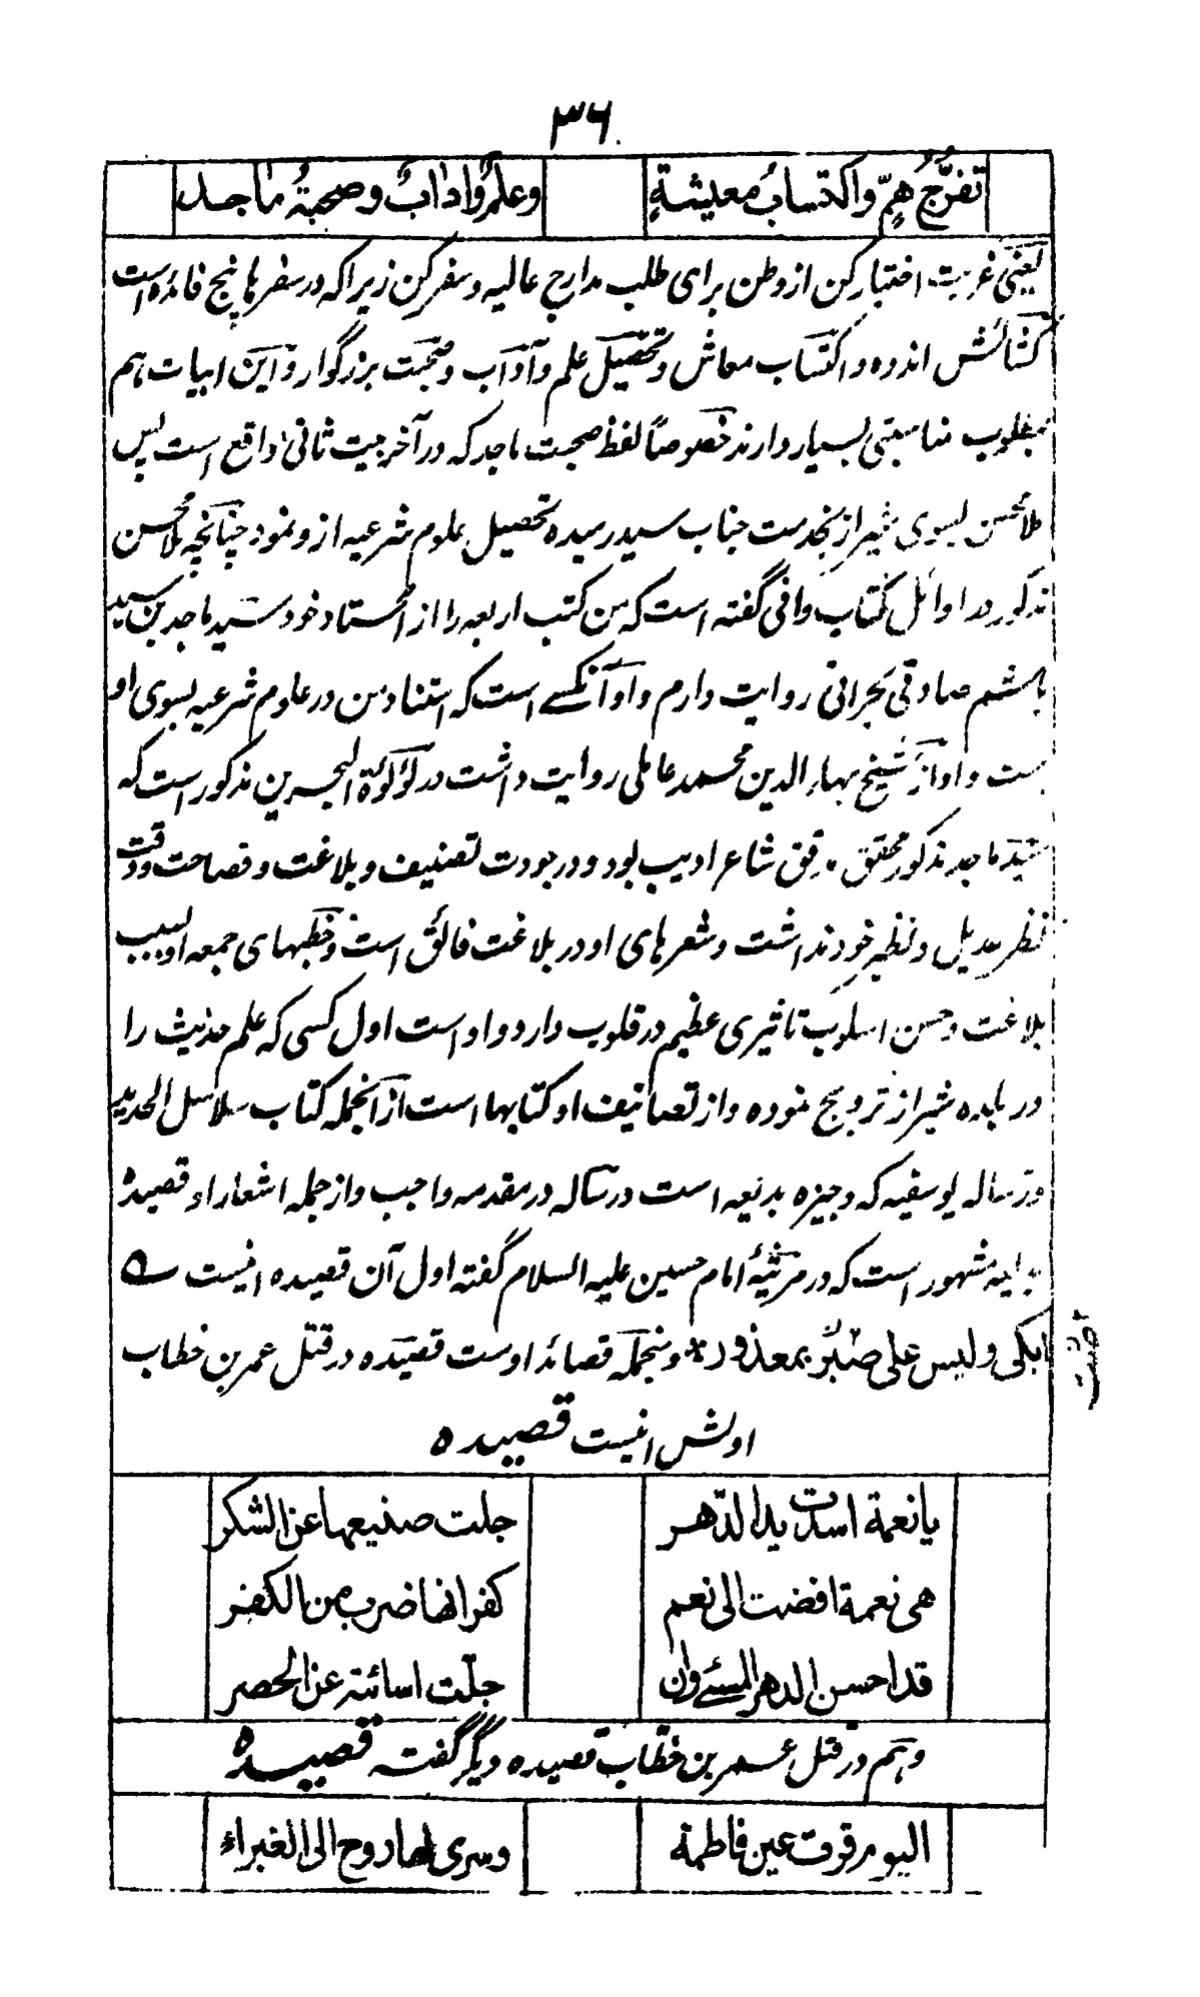 ۳۶
تفرّجُ همٍّ واکتسابُ معیشةٍ وعلمٌ واٰدابٌ وصحبةُ ماجد
یعنی غربت اختیار کن از وطن برای طلب مدارج عالیه و سفر کن زیرا که در سفرها پنج فائده است
کشائش اندوه و اکتساب معاش و تحصیل علم و آداب و صحبت بزرگوار و این ابیات هم
بمطلوب مناسبتی بسیار دارند خصوصاً لفظ صحبت ماجد که در آخر بیت ثانی واقع است پس
ملا محسن بسوی شیراز بخدمت جناب سید رسیده تحصیل علوم شرعیه ازو نمود چنانچه ملا محسن
مذکور در اوائل کتاب وافی گفته است که من کتب اربعه را از استاد خود سید ماجد بن سید
هاشم صادقی بحرانی روایت دارم و او آنکسے است که استناد من در علوم شرعیه بسوی او
ست و او از شیخ بهاء الدین محمد عاملی روایت داشت در لؤلؤة البحرین مذکور است که
سید ماجد مذکور محقق مدقق شاعر ادیب بود و در جودت تصنیف و بلاغت و فصاحت و دقت
نظر عدیل و نظیر خود نداشت و شعرهای او در بلاغت فائق است و خطبهای جمعه او بسبب
بلاغت و حسن اسلوب تاثیری عظیم در قلوب دارد و او است اول کسی که علم حدیث را
در بلده شیراز ترویج نموده و از تصانیف او کتابها است از انجمله کتاب سلاسل الحدید
و رساله یوسفیه که وجیزه بدیعه است و رساله در مقدمه واجب و از جمله اشعار او قصیدهٔ
رائیه مشهور است که در مرثیهٔ امام حسین علیه السلام گفته اول آن قصیده اینست ے
ابکی ولیس علی صبرٌ بمعذور * و منجمله قصائد اوست قصیده در قتل عمر بن خطاب
اولش اینست قصیده
یا نعمة اسدت یدا الدّهر جلت صنیعها عن الشکر
هی نعمة افضت الی نعم کفرانها ضرب من الکفر
قد احسن الدهر المسئ وان جلّت اسائته عن الحصر
و هم در قتل عمر بن خطاب قصیده دیگر گفته قصیده
الیوم قرت عین فاطمة وسری لها روح الی الغبراء